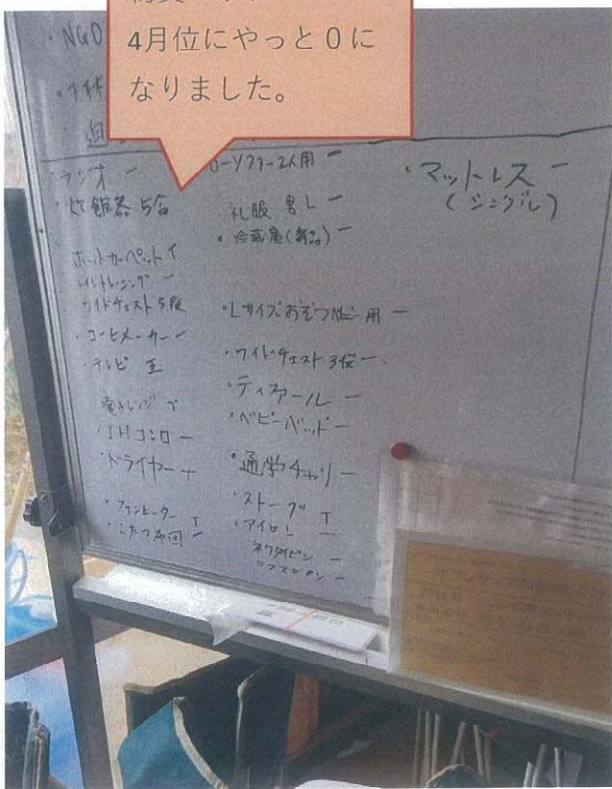 4月位にやっと0に
なりました。
・NGO
・ラジオ 一
・炊飯器 5合
ホットカーペット T
ワイドチェスト5段
・コーヒメーカー 一
・テレビ 正
電子レンジ T
・IHコンロ 一
・ドライヤー 一
・ファンヒーター T
・こたつ布団 一
ローソファー2人用 一
・礼服 男L 一
・冷蔵庫(新品) 一
・Lサイズおむつベビー用 一
・ワイドチェスト3段 一
・ティファール 一
・ベビーベッド 一
・通学チャリ 一
・ストーブ T
・アイロン 一
ネクタイピン 一
・マットレス 一
(シングル)